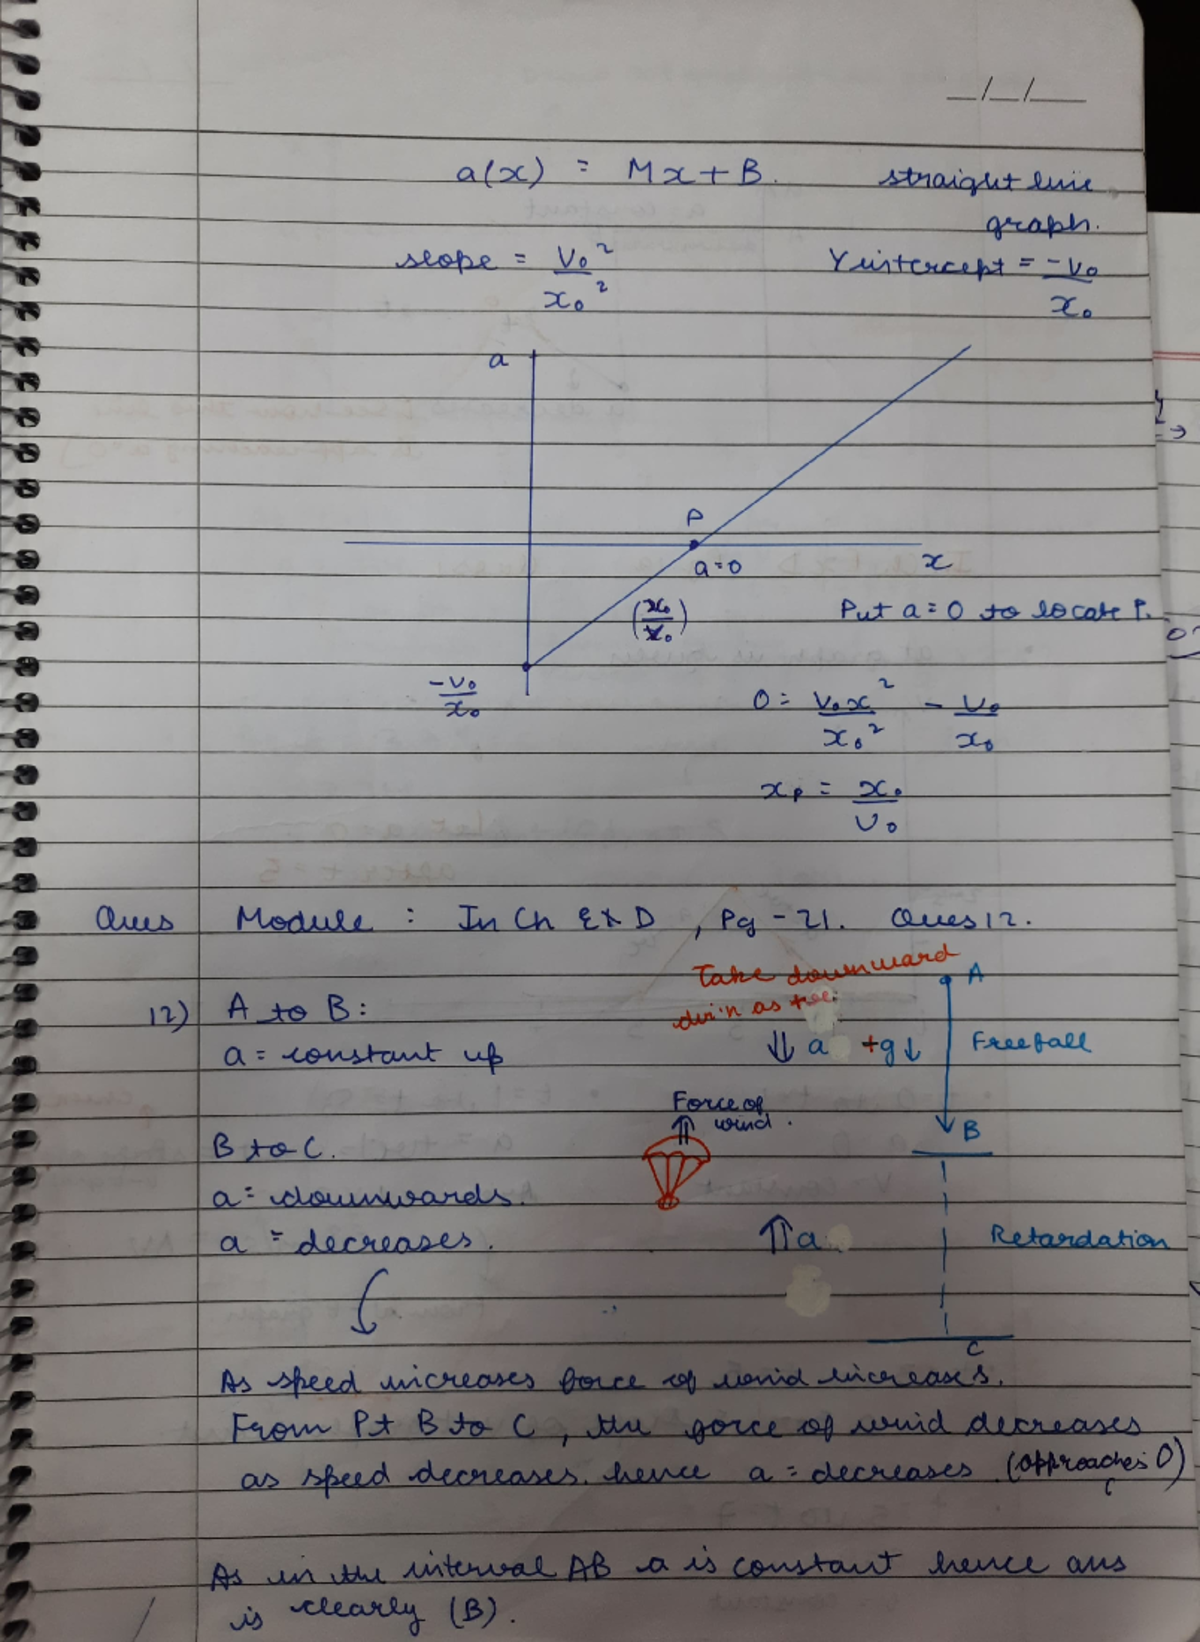 __/__/____
a(x) = Mx + B. straight line
graph.
slope = v₀²/x₀² Y intercept = -v₀/x₀
a
P
a=0 x
(x₀/v₀) Put a=0 to locate P.
-v₀/x₀
0 = v₀x²/x₀² - v₀/x₀
xₚ = x₀/v₀
Ques Module : In Ch Ex D, Pg - 21. Ques 12.
Take downward A
dir'n as +ve.
12) A to B:
a = constant up ⇓ a +g↓ Freefall
Force of
wind.
B to C. B
a = downwards.
a = decreases. ⇑a Retardation
C
As speed increases force of wind increases.
From Pt B to C, the force of wind decreases
as speed decreases. hence a = decreases (approaches 0)
As in the interval AB a is constant hence ans
is clearly (B).